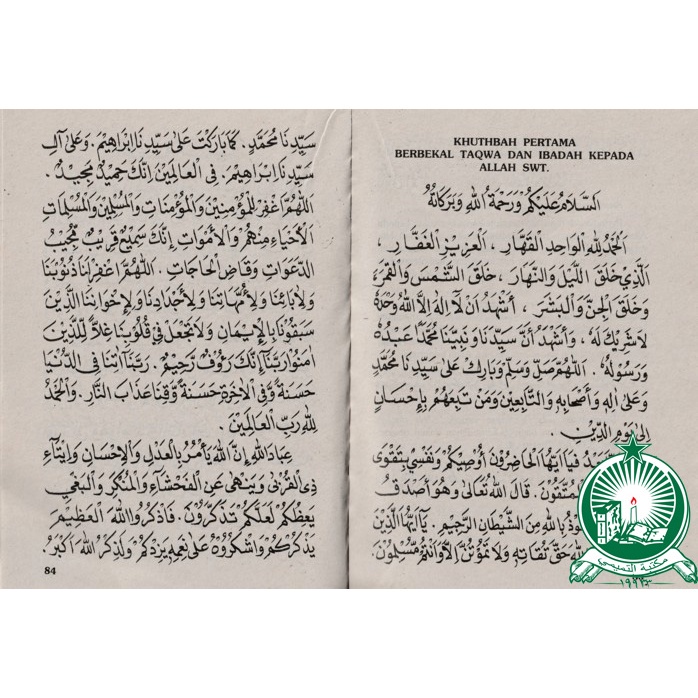 KHUTHBAH PERTAMA
BERBEKAL TAQWA DAN IBADAH KEPADA
ALLAH SWT.
اَلسَّلَامُ عَلَيْكُمْ وَرَحْمَةُ اللهِ وَبَرَكَاتُهُ
اَلْحَمْدُ لِلّٰهِ الْوَاحِدِ الْقَهَّارِ ، اَلْعَزِيْزِ الْغَفَّارِ ،
اَلَّذِيْ خَلَقَ اللَّيْلَ وَالنَّهَارَ ، خَلَقَ الشَّمْسَ وَالْقَمَرَ ،
وَخَلَقَ الْجِنَّ وَالْبَشَرَ ، أَشْهَدُ اَنْ لَا اِلٰهَ اِلَّا اللهُ وَحْدَهُ
لَا شَرِيْكَ لَهُ ، وَأَشْهَدُ أَنَّ سَيِّدَنَا وَنَبِيَّنَا مُحَمَّدًا عَبْدُهُ
وَرَسُوْلُهُ . اَللّٰهُمَّ صَلِّ وَسَلِّمْ وَبَارِكْ عَلَى سَيِّدِنَا مُحَمَّدٍ
وَعَلَى اٰلِهِ وَأَصْحَابِهِ وَالتَّابِعِيْنَ وَمَنْ تَبِعَهُمْ بِإِحْسَانٍ
اِلَى يَوْمِ الدِّيْنِ .
فَيَا اَيُّهَا الْحَاضِرُوْنَ أُوْصِيْكُمْ وَنَفْسِيْ بِتَقْوَى
الْمُتَّقُوْنَ . قَالَ اللهُ تَعَالَى وَهُوَ أَصْدَقُ
بِاللهِ مِنَ الشَّيْطَانِ الرَّجِيْمِ . يَآاَيُّهَا الَّذِيْنَ
حَقَّ تُقَاتِهِ وَلَا تَمُوْتُنَّ اِلَّا وَاَنْتُمْ مُسْلِمُوْنَ .
سَيِّدِنَا مُحَمَّدٍ . كَمَا بَارَكْتَ عَلَى سَيِّدِنَا اِبْرَاهِيْمَ . وَعَلَى اٰلِ
سَيِّدِنَا اِبْرَاهِيْمَ . فِى الْعَالَمِيْنَ اِنَّكَ حَمِيْدٌ مَجِيْدٌ .
اَللّٰهُمَّ اغْفِرْ لِلْمُؤْمِنِيْنَ وَالْمُؤْمِنَاتِ وَالْمُسْلِمِيْنَ وَالْمُسْلِمَاتِ
اَلْأَحْيَاءِ مِنْهُمْ وَالْأَمْوَاتِ اِنَّكَ سَمِيْعٌ قَرِيْبٌ مُجِيْبُ
الدَّعَوَاتِ وَقَاضِ الْحَاجَاتِ . اَللّٰهُمَّ اغْفِرْ لَنَا ذُنُوْبَنَا
وَلِاٰبَائِنَا وَلِأُمَّهَاتِنَا وَلِأَجْدَادِنَا وَلِإِخْوَانِنَا الَّذِيْنَ
سَبَقُوْنَا بِالْإِيْمَانِ وَلَا تَجْعَلْ فِيْ قُلُوْبِنَا غِلًّا لِلَّذِيْنَ
اٰمَنُوْا رَبَّنَا اِنَّكَ رَؤُوْفٌ رَحِيْمٌ . رَبَّنَا اٰتِنَا فِى الدُّنْيَا
حَسَنَةً وَّفِى الْاٰخِرَةِ حَسَنَةً وَّقِنَا عَذَابَ النَّارِ . وَالْحَمْدُ
لِلّٰهِ رَبِّ الْعَالَمِيْنَ .
عِبَادَ اللهِ اِنَّ اللهَ يَأْمُرُ بِالْعَدْلِ وَالْإِحْسَانِ وَاِيْتَآئِ
ذِى الْقُرْبَى وَيَنْهَى عَنِ الْفَحْشَآءِ وَالْمُنْكَرِ وَالْبَغْيِ
يَعِظُكُمْ لَعَلَّكُمْ تَذَكَّرُوْنَ . فَاذْكُرُوا اللهَ الْعَظِيْمَ
يَذْكُرْكُمْ وَاشْكُرُوْهُ عَلَى نِعَمِهِ يَزِدْكُمْ وَلَذِكْرُ اللهِ اَكْبَرُ .
84
مكتبة القميسي